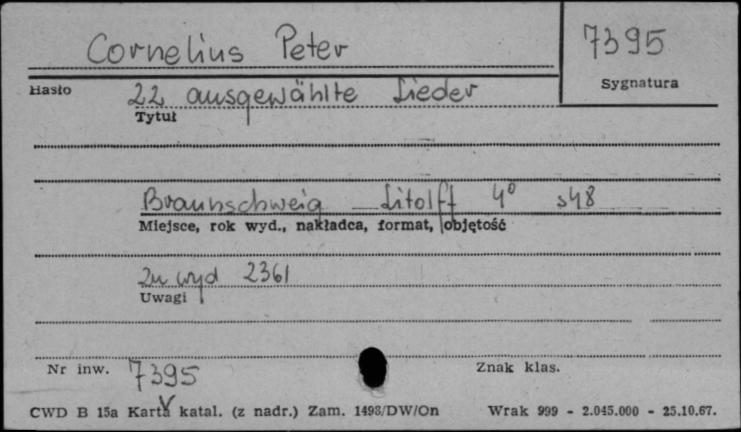 Cornelius Peter
7395
Hasło
Sygnatura
22 ausgewählte Lieder
Tytuł
Braunschweig Litolff 4° s48
Miejsce, rok wyd., nakładca, format, objętość
wyd 2361
Uwagi
Nr inw. 7395
Znak klas.
CWD B 15a Karta katal. (z nadr.) Zam. 1498/DW/On Wrak 999 - 2.045.000 - 25.10.67.